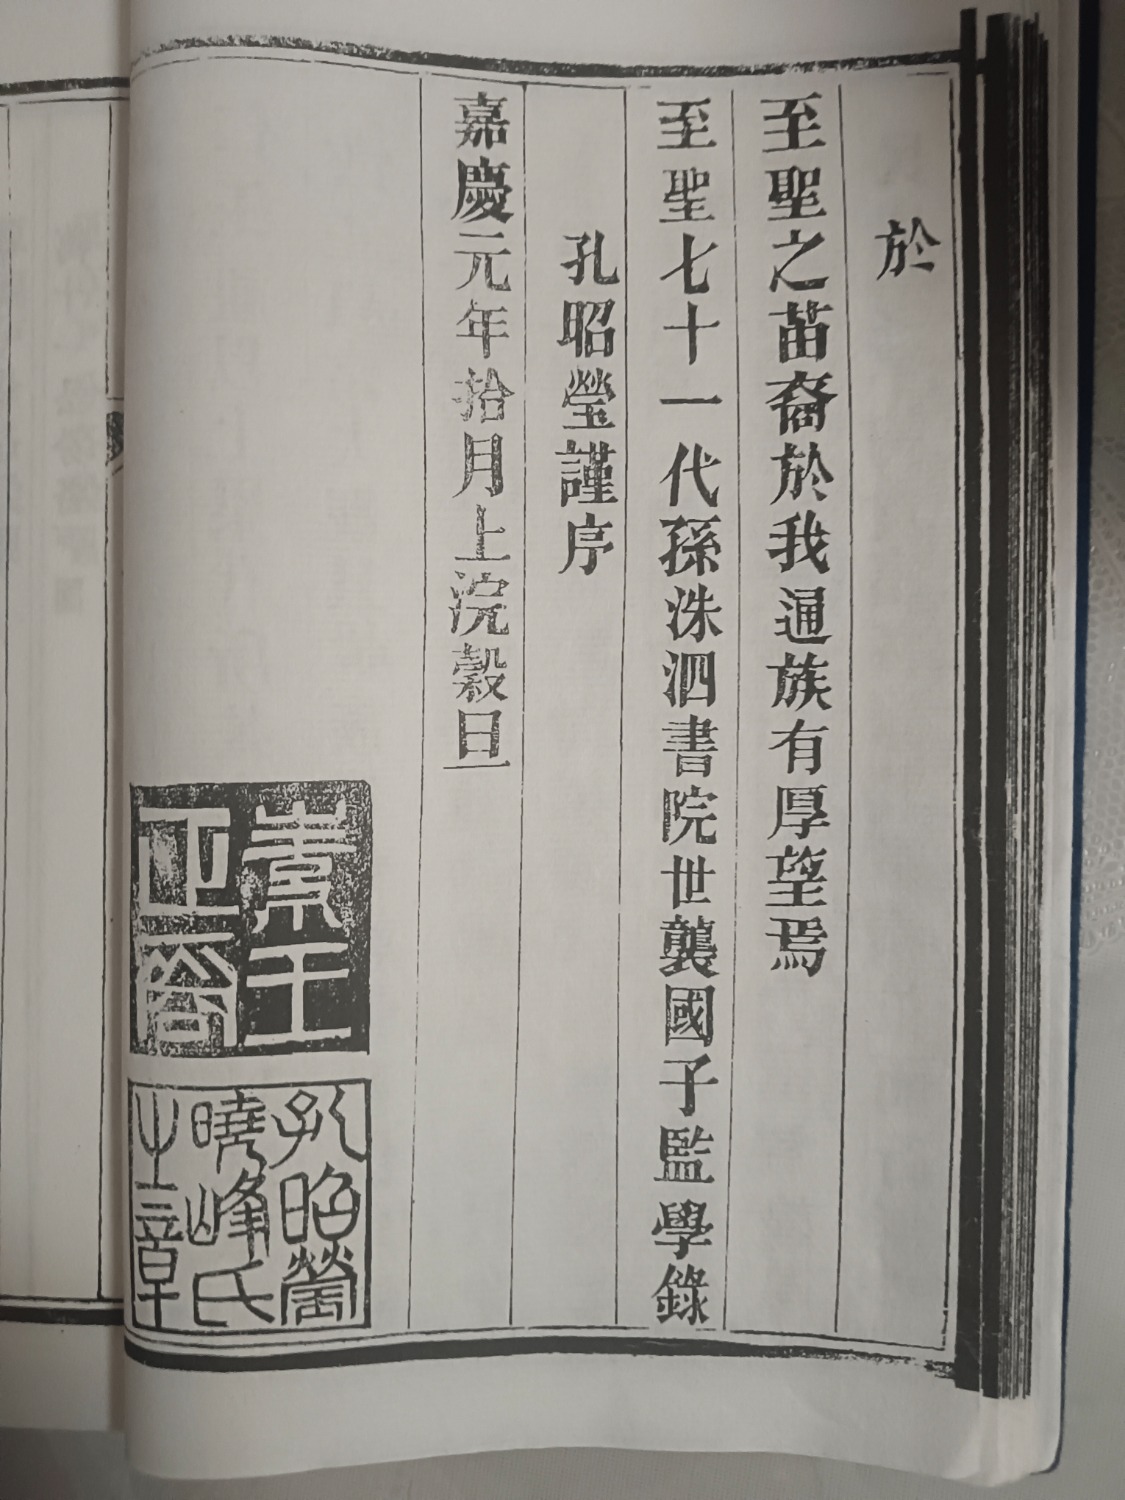 於
至聖之苗裔於我通族有厚望焉
至聖七十一代孫洙泗書院世襲國子監學錄
孔昭瑩謹序
嘉慶元年拾月上浣穀旦
素王
正裔
孔昭瑩
曉峰氏
之章